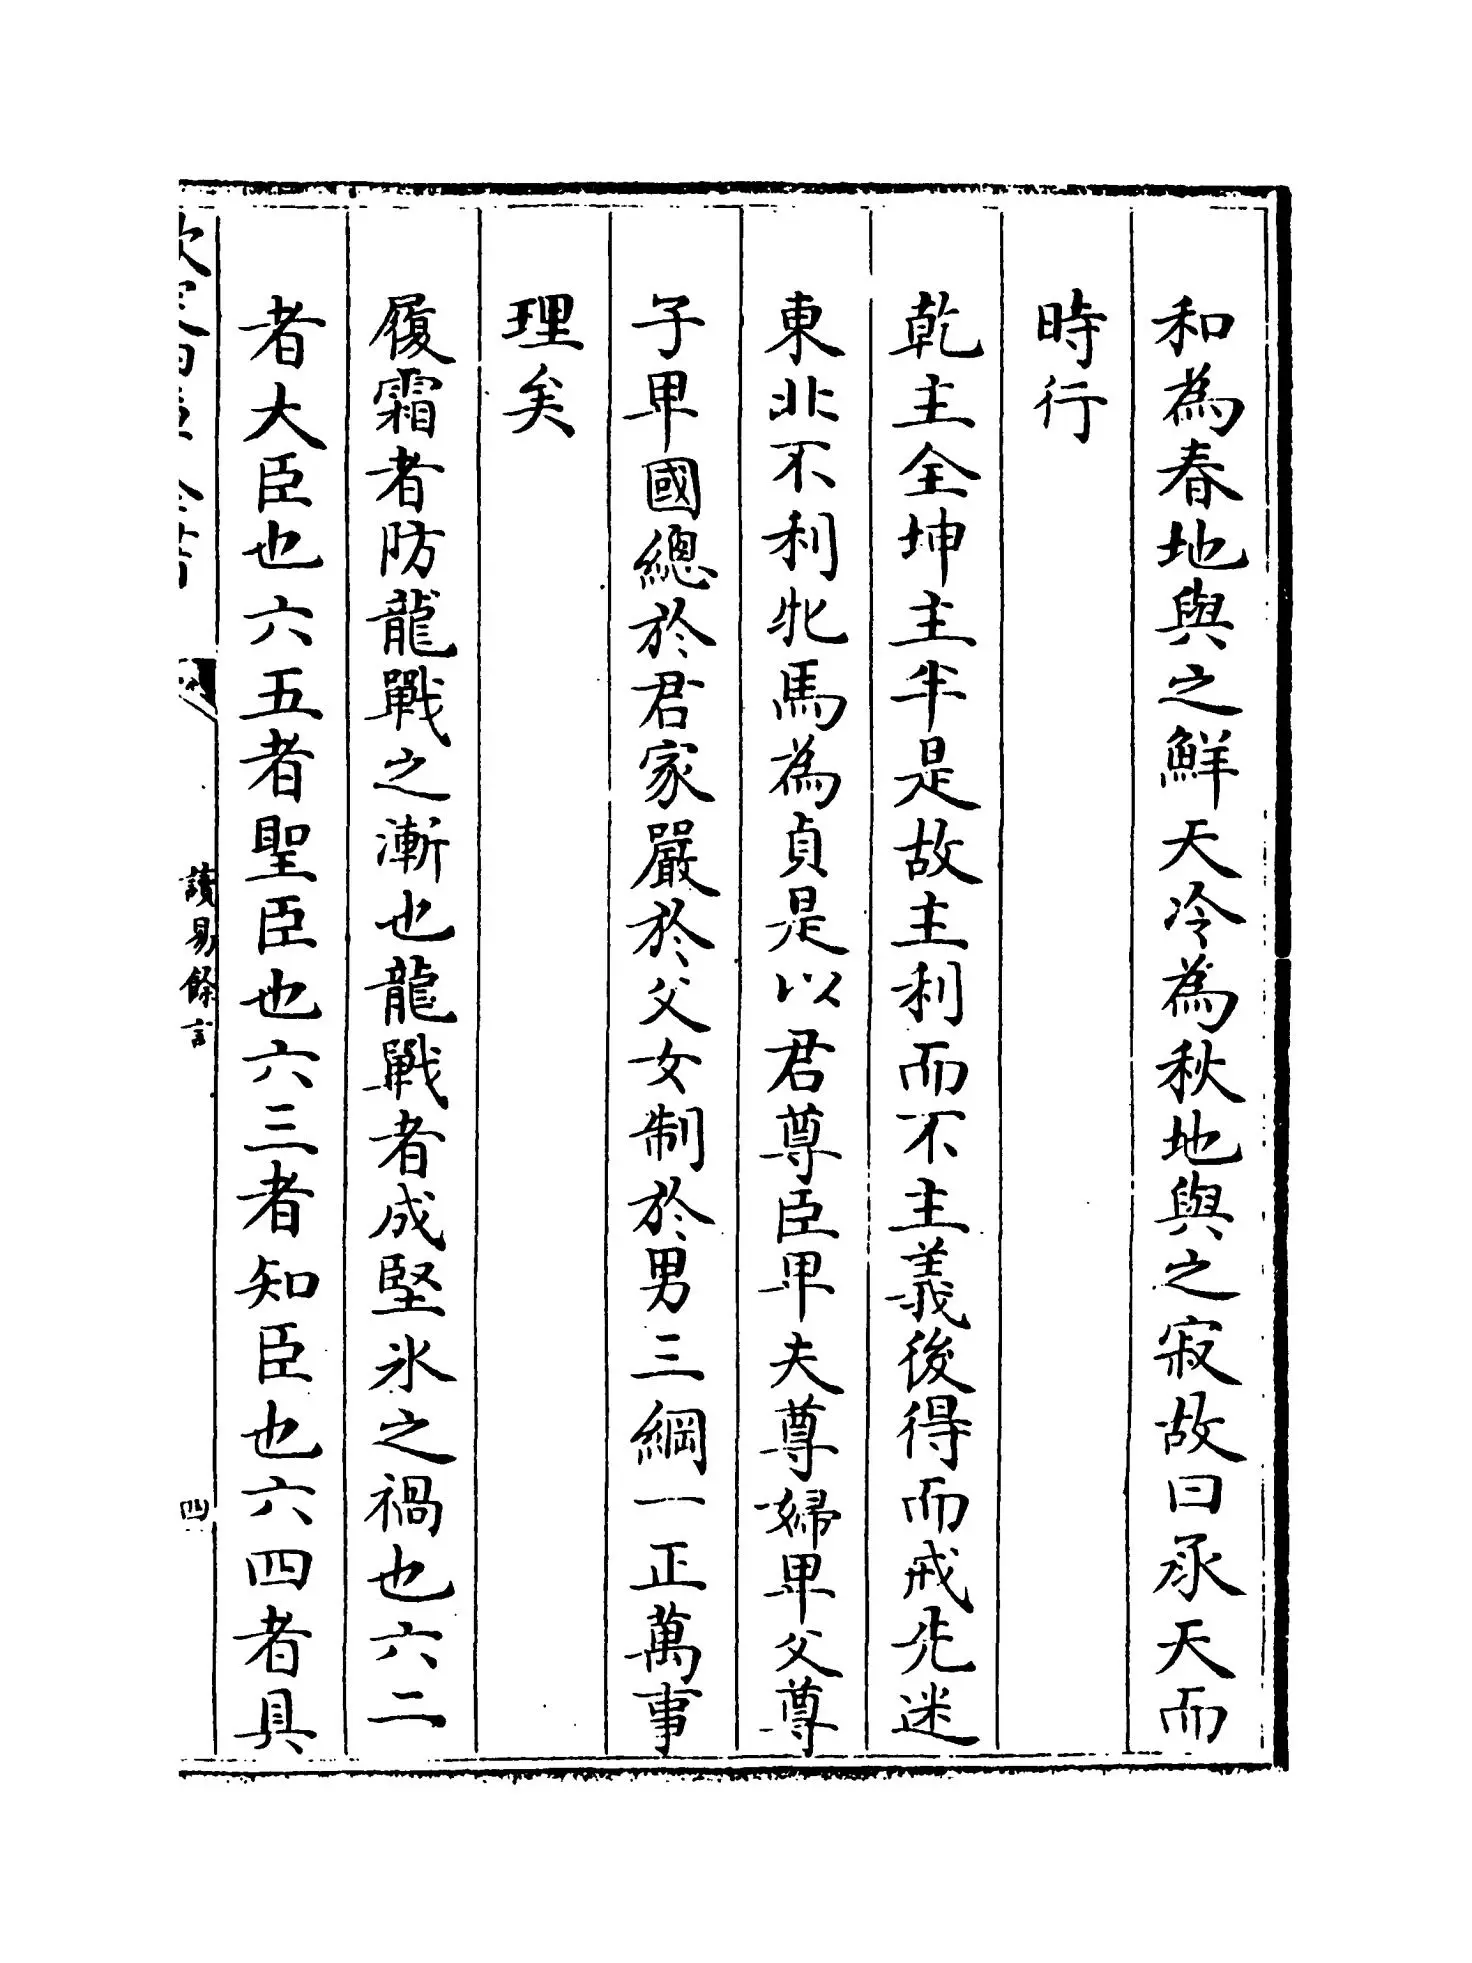 和為春地與之鮮天冷為秋地與之寂故曰承天而
時行
乾主全坤主半是故主利而不主義後得而戒先迷
東北不利牝馬為貞是以君尊臣卑夫尊婦卑父尊
子卑國總於君家嚴於父女制於男三綱一正萬事
理矣
履霜者防龍戰之漸也龍戰者成堅氷之禍也六二
者大臣也六五者聖臣也六三者知臣也六四者具
讀易餘言
四